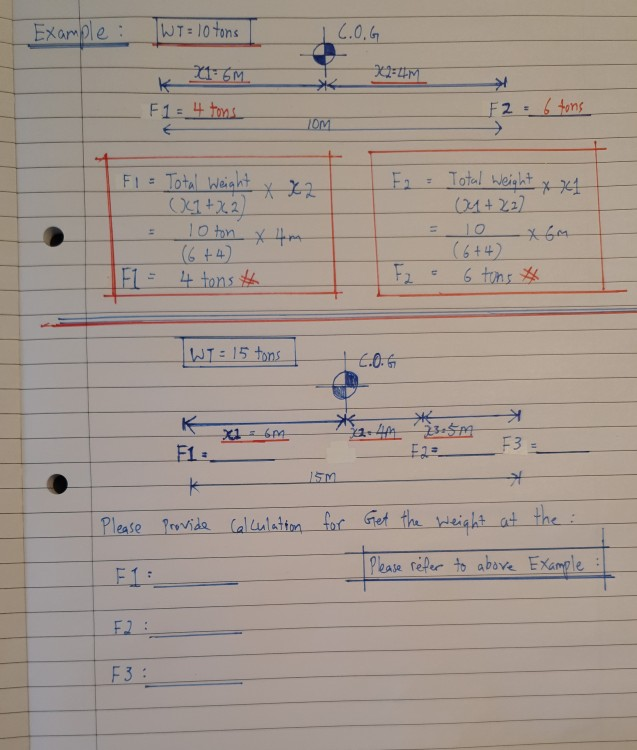 Example : WT = 10 tons C.O.G
x1 = 6M x2 = 4M
F1 = 4 tons F2 = 6 tons
10M
F1 = Total Weight / (x1 + x2) × x2
= 10 ton / (6+4) × 4m
F1 = 4 tons #
F2 = Total Weight / (x1 + x2) × x1
= 10 / (6+4) × 6m
F2 = 6 tons #
WT = 15 tons
C.O.G
x1 = 6M x2 = 4M x3 = 5M
F1 = F2 = F3 =
15M
Please Provide Calculation for Get the weight at the :
Please refer to above Example :
F1 :
F2 :
F3 :